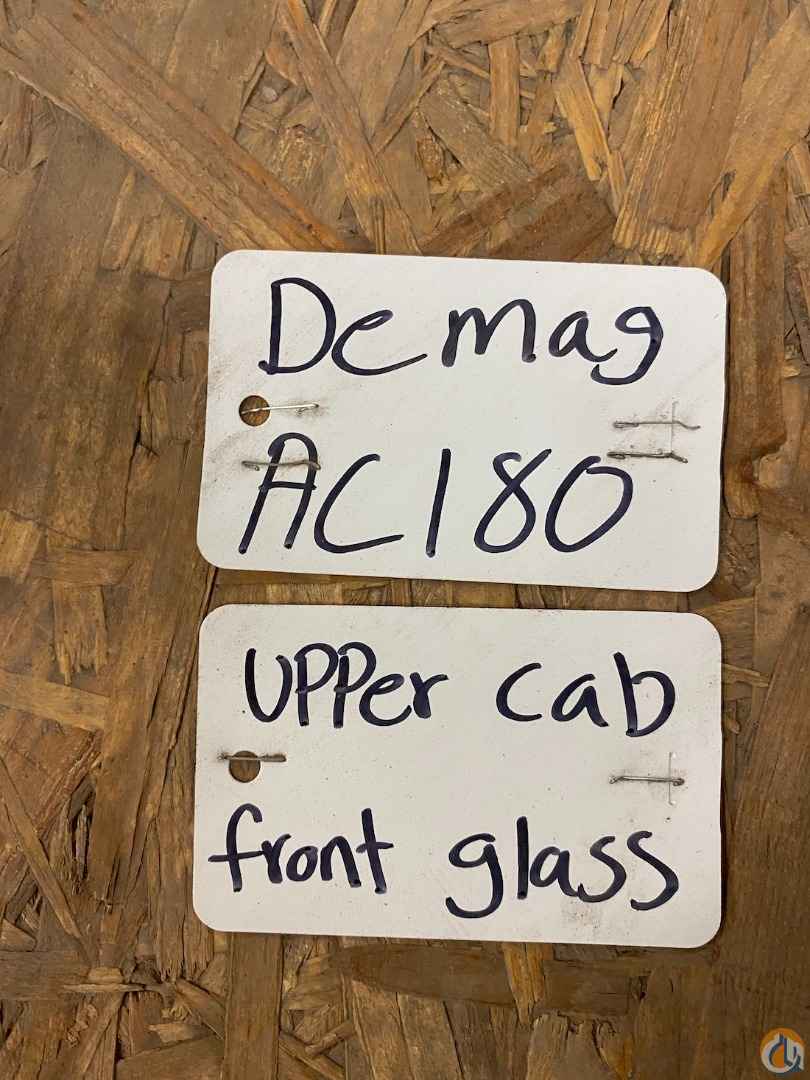 Demag
AC180
UPPer cab
front glass